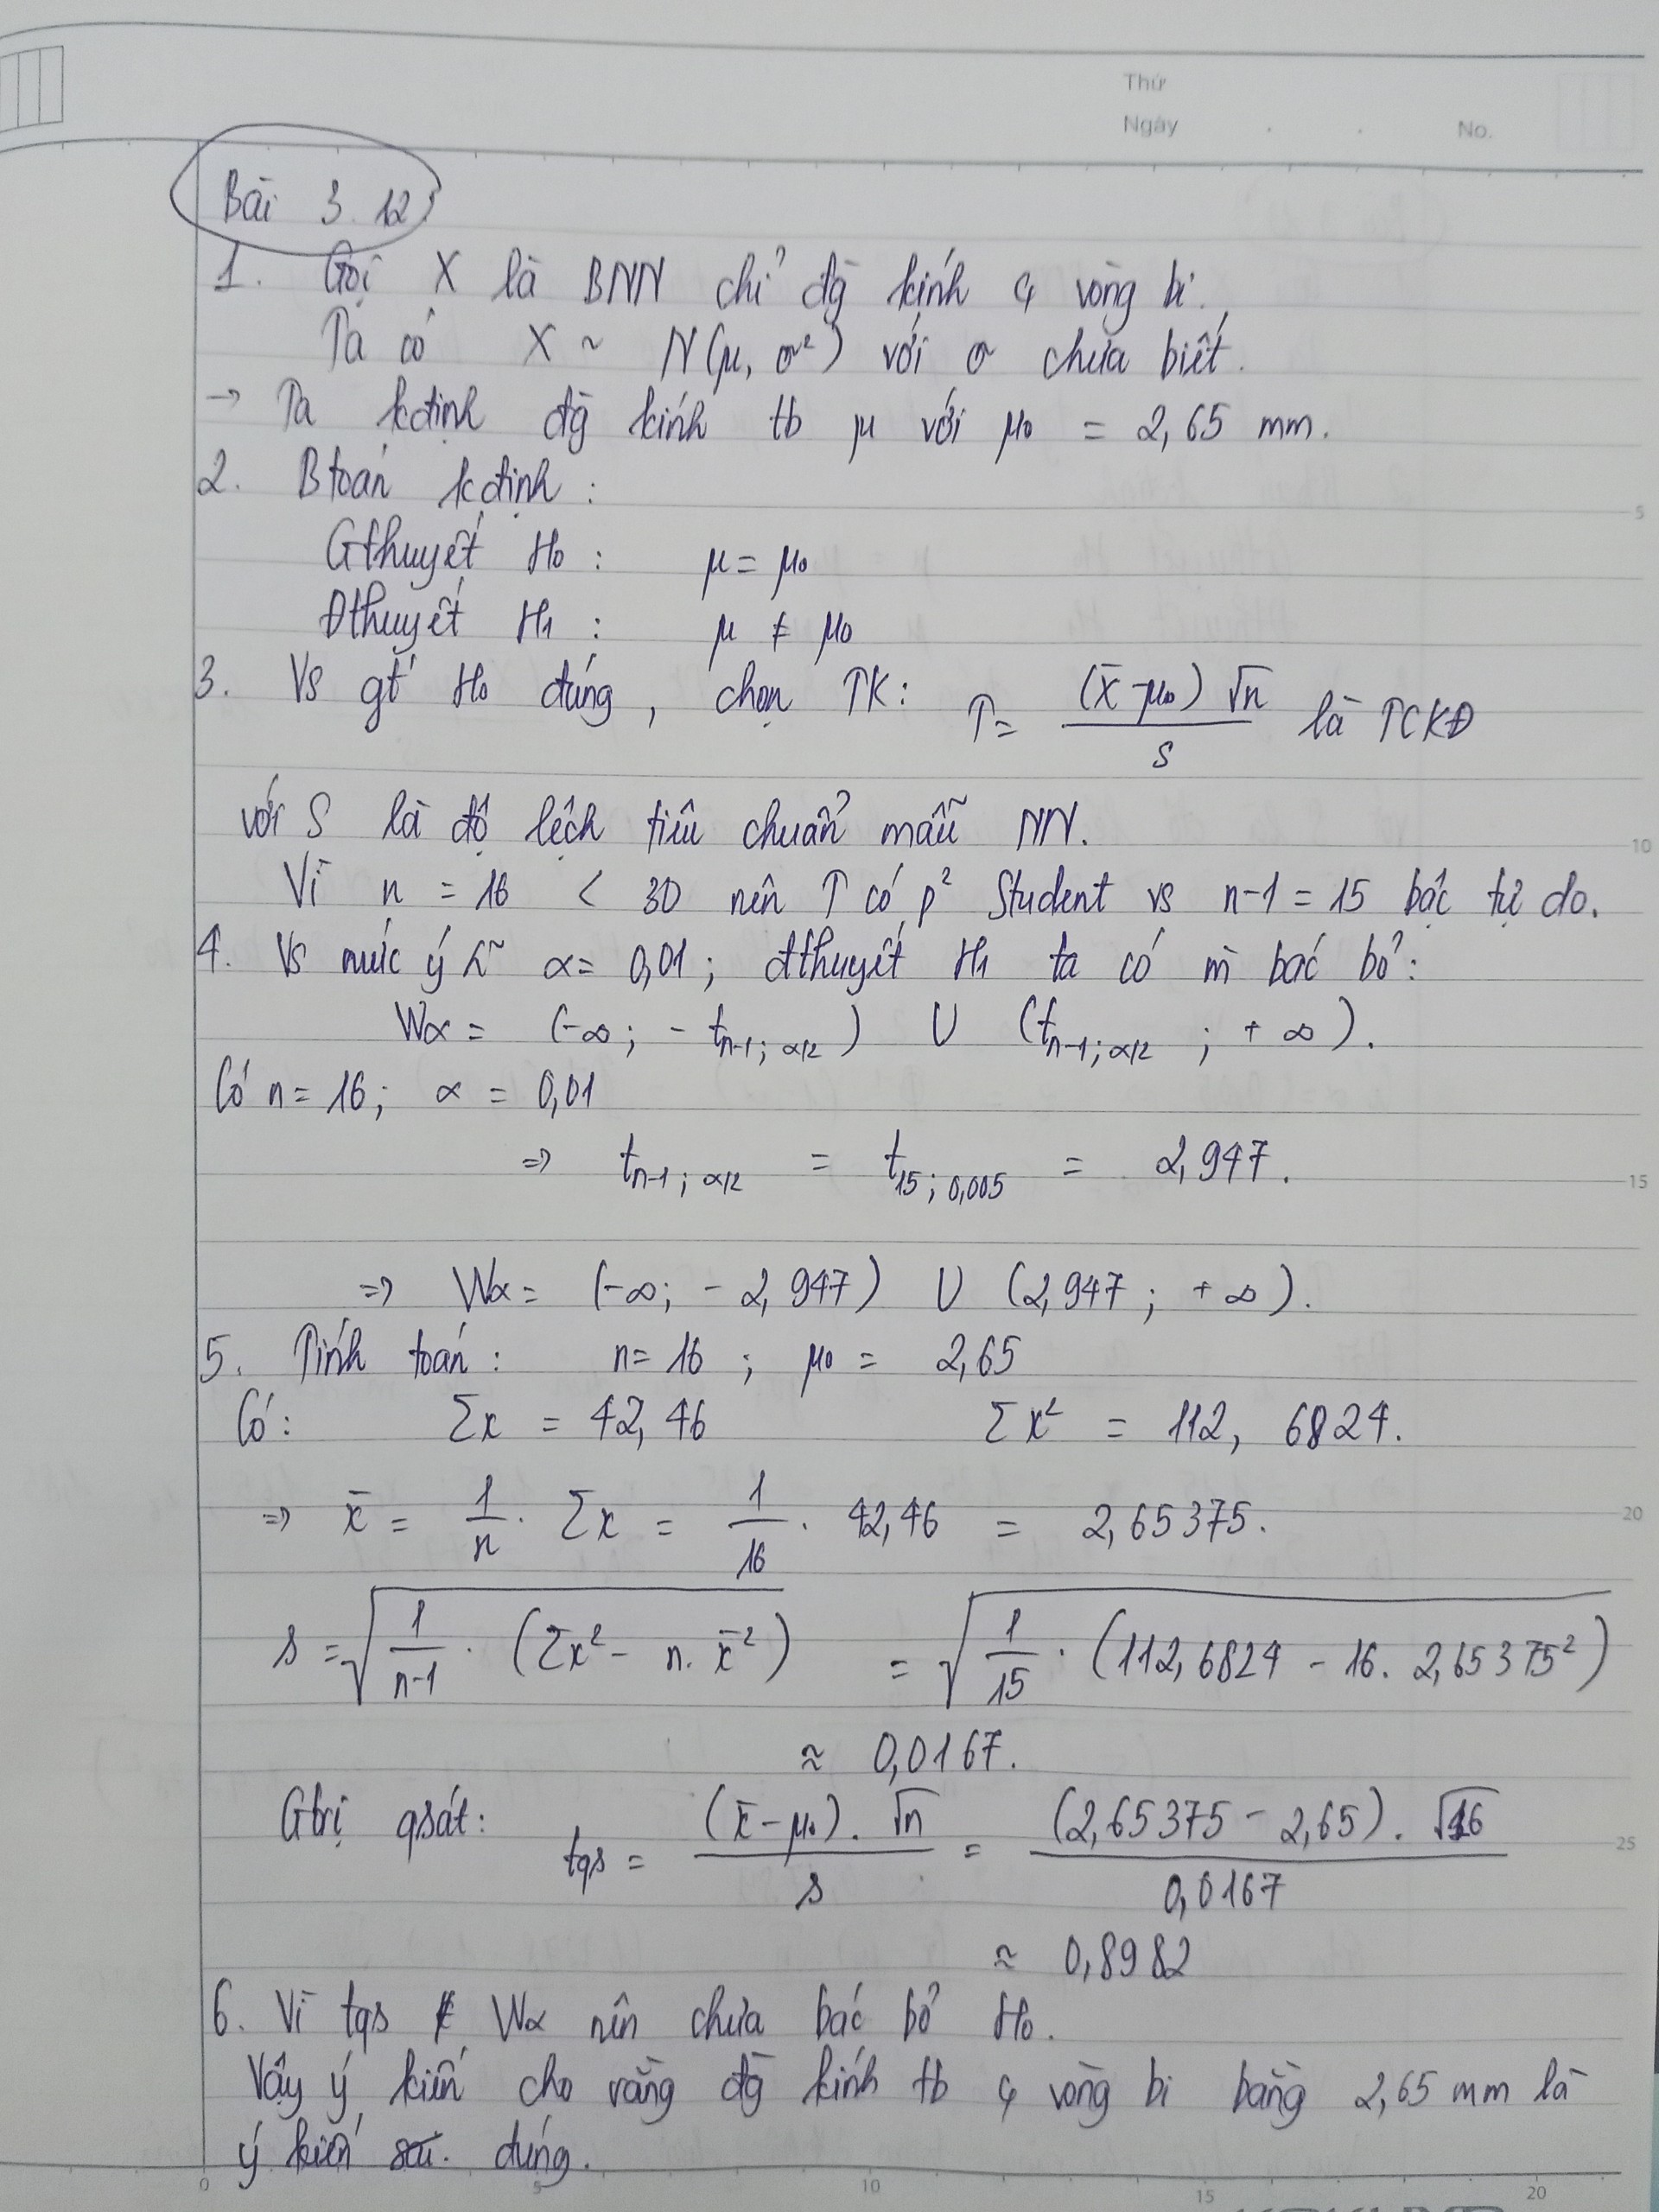 Thứ
Ngày . . No.
Bài 3.12
1. Gọi X là BNN chỉ đg kính củ vòng bi.
Ta có X ~ N(μ, σ²) với σ chưa biết.
→ Ta kđịnh đg kính tb μ với μ₀ = 2,65 mm.
2. Btoán kđịnh :
Gthuyết H₀ : μ = μ₀
Đthuyết H₁ : μ ≠ μ₀
3. Vs gt H₀ đúng, chọn TK: T = (x̄ - μ₀) √n / S là TCKĐ
với S là độ lệch tiêu chuẩn mẫu NN.
Vì n = 16 < 30 nên T có p² Student vs n-1 = 15 bậc tự do.
4. Vs mức ý n~ α = 0,01 ; đthuyết H₁ ta có m̀ bác bỏ :
Wα = (-∞ ; - t n-1; α/2) ∪ (t n-1; α/2 ; +∞).
Có n = 16 ; α = 0,01
=> t n-1; α/2 = t 15; 0,005 = 2,947.
=> Wα = (-∞ ; - 2,947) ∪ (2,947 ; +∞).
5. Tính toán : n = 16 ; μ₀ = 2,65
Có : Σx = 42,46 Σx² = 112,6824.
=> x̄ = 1/n . Σx = 1/16 . 42,46 = 2,65375.
s = √(1/(n-1) . (Σx² - n. x̄²)) = √(1/15 . (112,6824 - 16. 2,65375²))
≈ 0,0167.
Gtrị qsát : tqs = (x̄ - μ₀) . √n / s = (2,65375 - 2,65) . √16 / 0,0167
≈ 0,8982
6. Vì tqs ∉ Wα nên chưa bác bỏ H₀.
Vậy ý kiến cho rằng đg kính tb củ vòng bi bằng 2,65 mm là
ý kiến đúng.
5
10
15
20
25
0 5 10 15 20